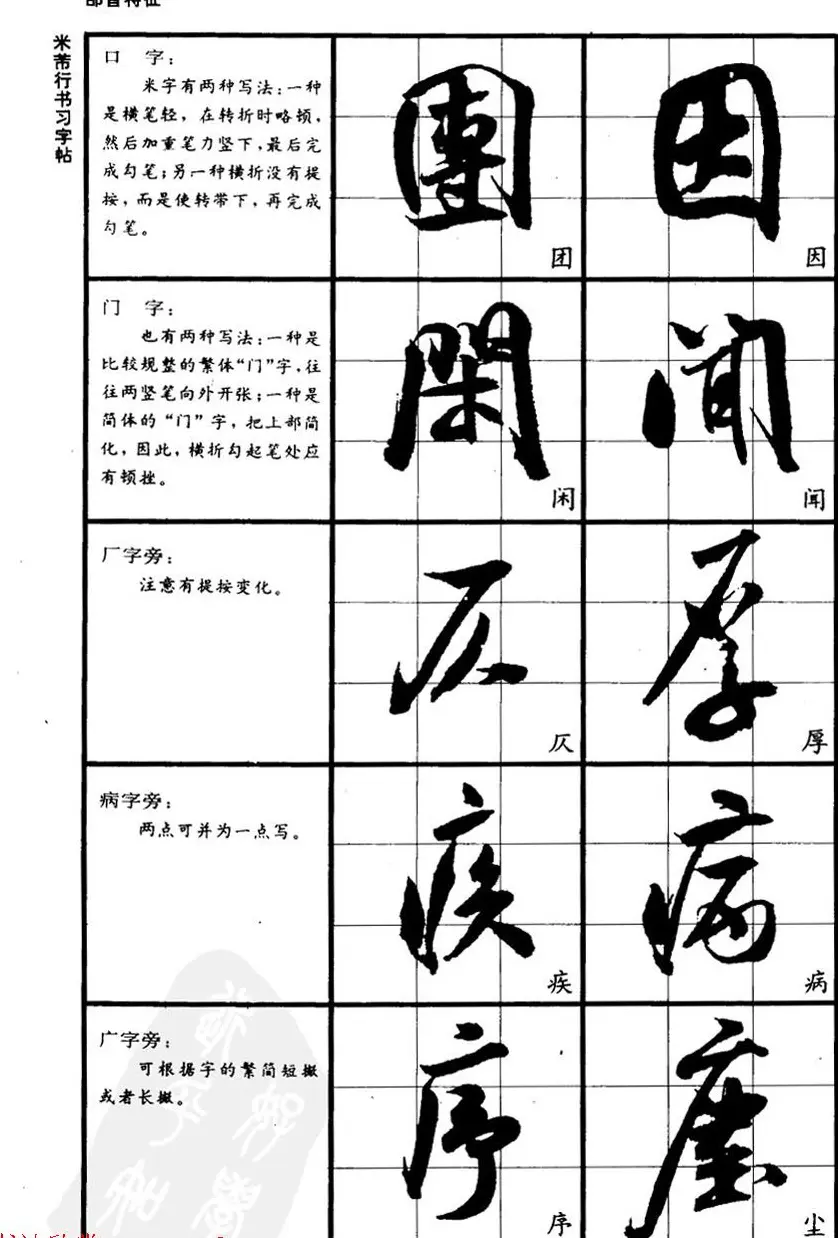 部首特征
米芾行书习字帖
口 字：
米字有两种写法：一种
是横笔轻，在转折时略顿，
然后加重笔力竖下，最后完
成勾笔；另一种横折没有提
按，而是使转带下，再完成
勾笔。
團
团
因
因
门 字：
也有两种写法：一种是
比较规整的繁体“门”字，往
往两竖笔向外开张；一种是
简体的“门”字，把上部简
化，因此，横折勾起笔处应
有顿挫。
閑
闲
闻
闻
厂字旁：
注意有提按变化。
仄
仄
厚
厚
病字旁：
两点可并为一点写。
疾
疾
病
病
广字旁：
可根据字的繁简短撇
或者长撇。
序
序
塵
尘